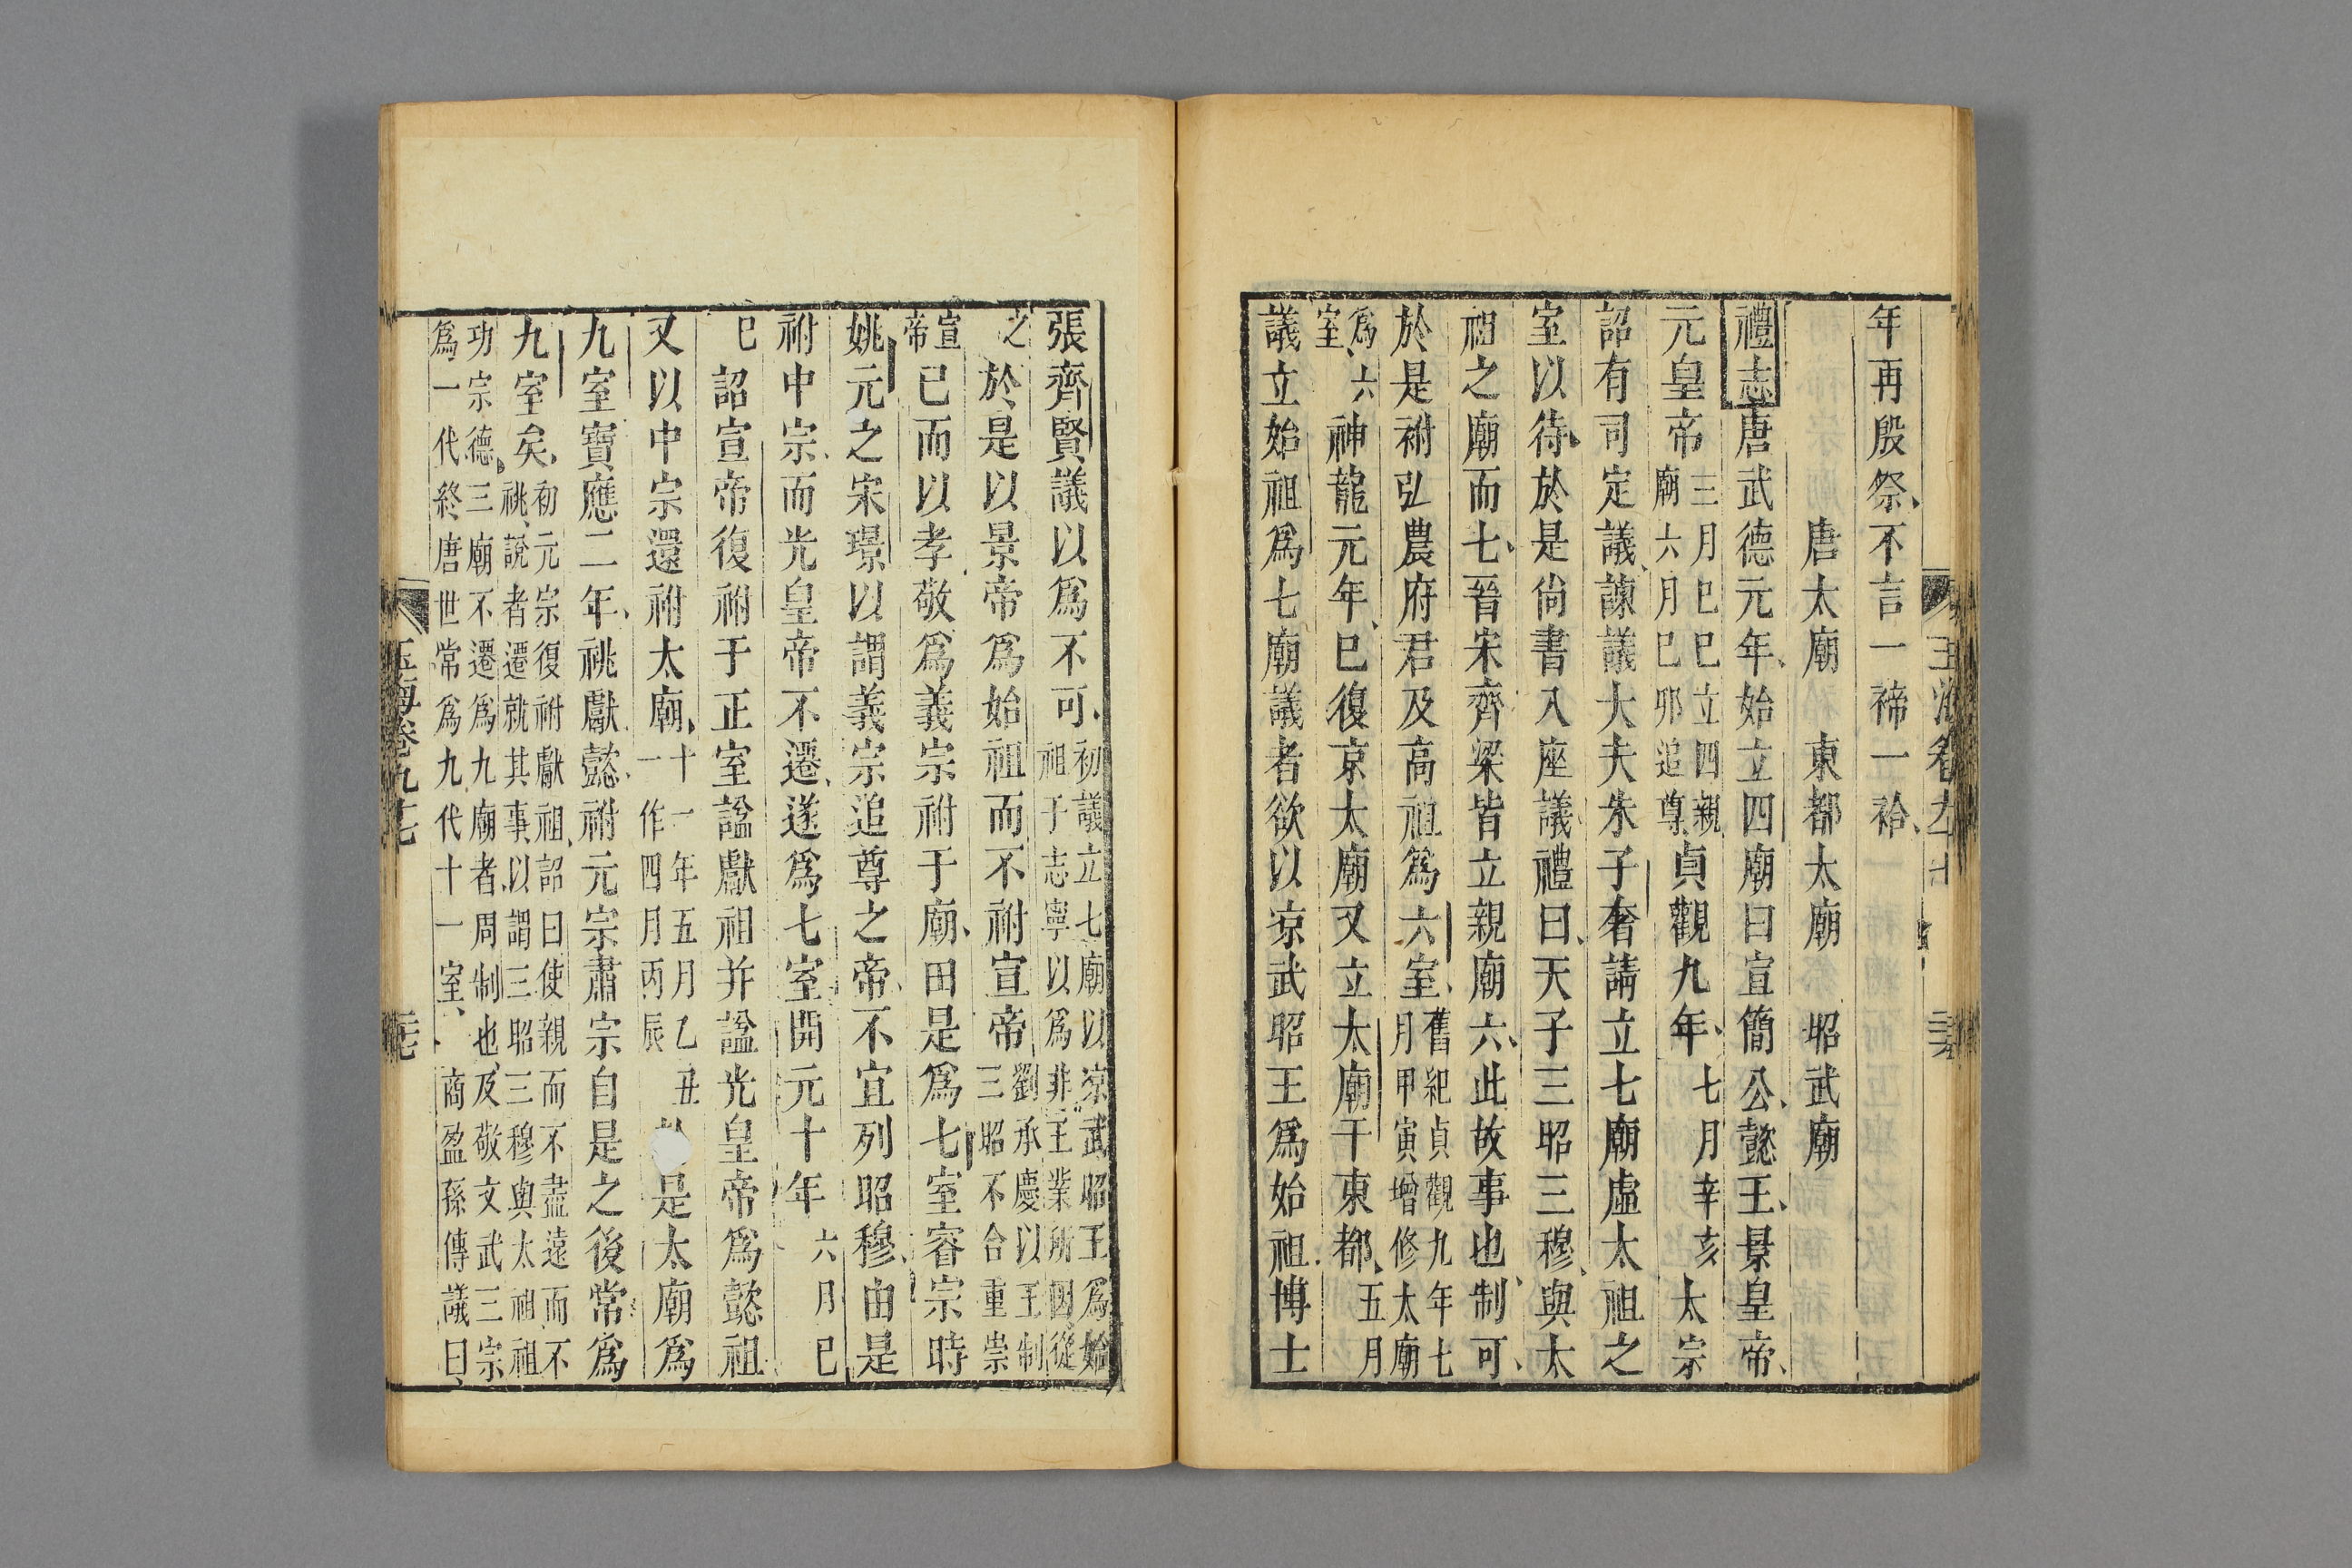 年再殷祭不言一禘一祫
唐太廟　東都太廟　昭武廟
禮志唐武德元年始立四廟曰宣簡公懿王景皇帝
元皇帝三月己巳立四親廟六月己卯追尊貞觀九年七月辛亥太宗
詔有司定議諫議大夫朱子奢請立七廟虛太祖之
室以待於是尚書八座議禮曰天子三昭三穆與太
祖之廟而七晉宋齊梁皆立親廟六此故事也制可
於是祔弘農府君及高祖爲六室舊紀貞觀九年七月甲寅增修太廟
爲六室神龍元年巳復京太廟又立太廟于東都五月
議立始祖爲七廟議者欲以涼武昭王爲始祖博士
張齊賢議以爲不可初議立七廟以涼武昭王爲始祖于志寧以爲非王業所因從
之劉承慶以王制三昭不合重崇於是以景帝爲始祖而不祔宣帝
宣帝已而以孝敬爲義宗祔于廟由是爲七室睿宗時
姚元之宋璟以謂義宗追尊之帝不宜列昭穆由是
祔中宗而光皇帝不遷遂爲七室開元十年六月己
巳詔宣帝復祔于正室諡獻祖并諡光皇帝爲懿祖
又以中宗還祔太廟十一年五月乙丑一作四月丙辰是太廟爲
九室寶應二年祧獻懿祔元宗肅宗自是之後常爲
九室矣初元宗復祔獻祖詔曰使親而不盡遠而不祧說者遷就其事以謂三昭三穆與太祖祖
功宗德三廟不遷爲九廟者周制也及敬文武三宗爲一代終唐世常爲九代十一室商盈孫傳議曰
玉海卷九十七